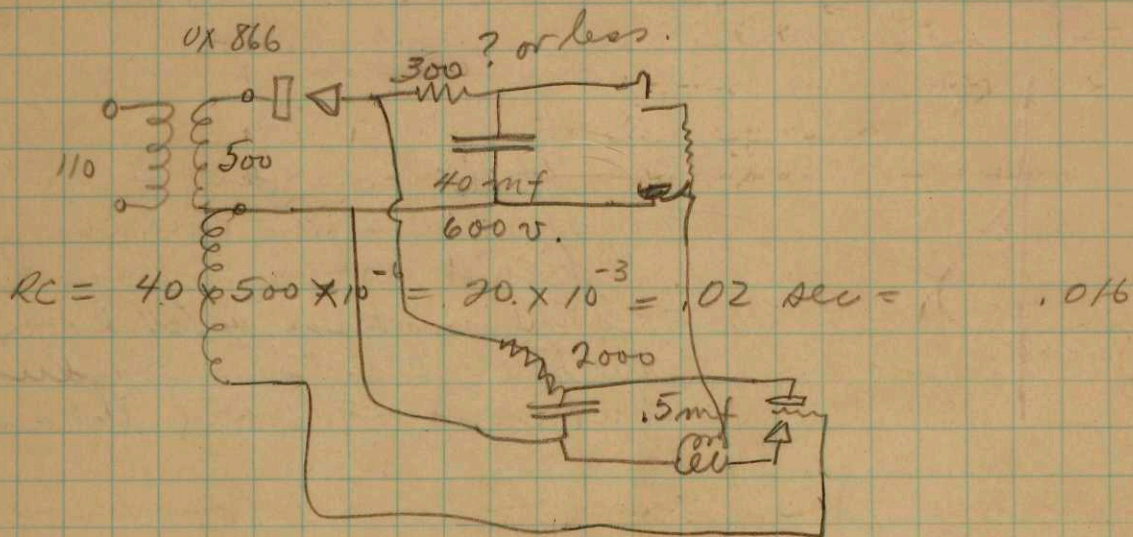 UX 866
300 ? or less.
110
500
40 mf
600 v.
RC = 40 × 500 × 10⁻⁶ = 20. × 10⁻³ = .02 sec = .016
2000
.5mf